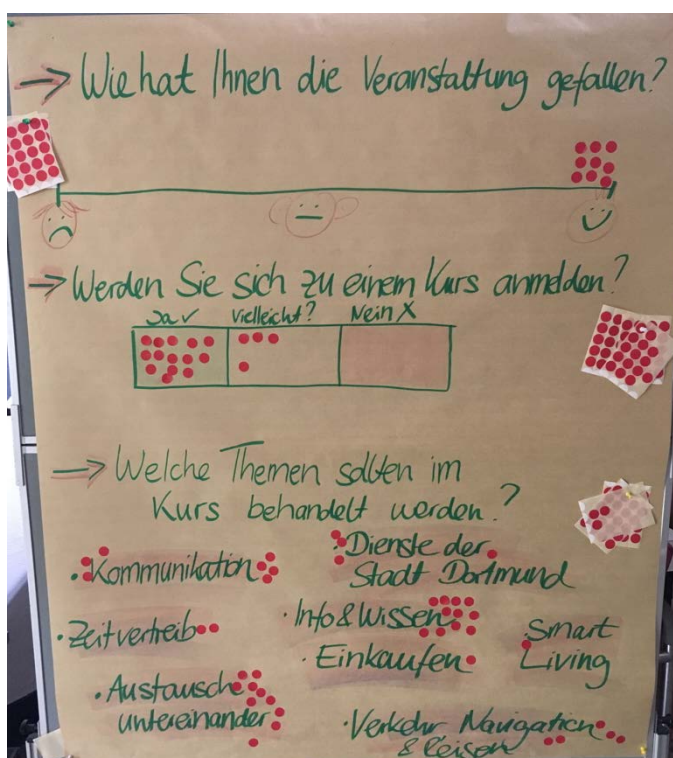 → Wie hat Ihnen die Veranstaltung gefallen?
→ Werden Sie sich zu einem Kurs anmelden?
Ja ✓ Vielleicht? Nein X
→ Welche Themen sollten im
Kurs behandelt werden?
· Kommunikation
· Dienste der
Stadt Dortmund
· Zeitvertreib
· Info & Wissen
· Einkaufen
· Smart
Living
· Austausch
untereinander
· Verkehr Navigation
& Reisen